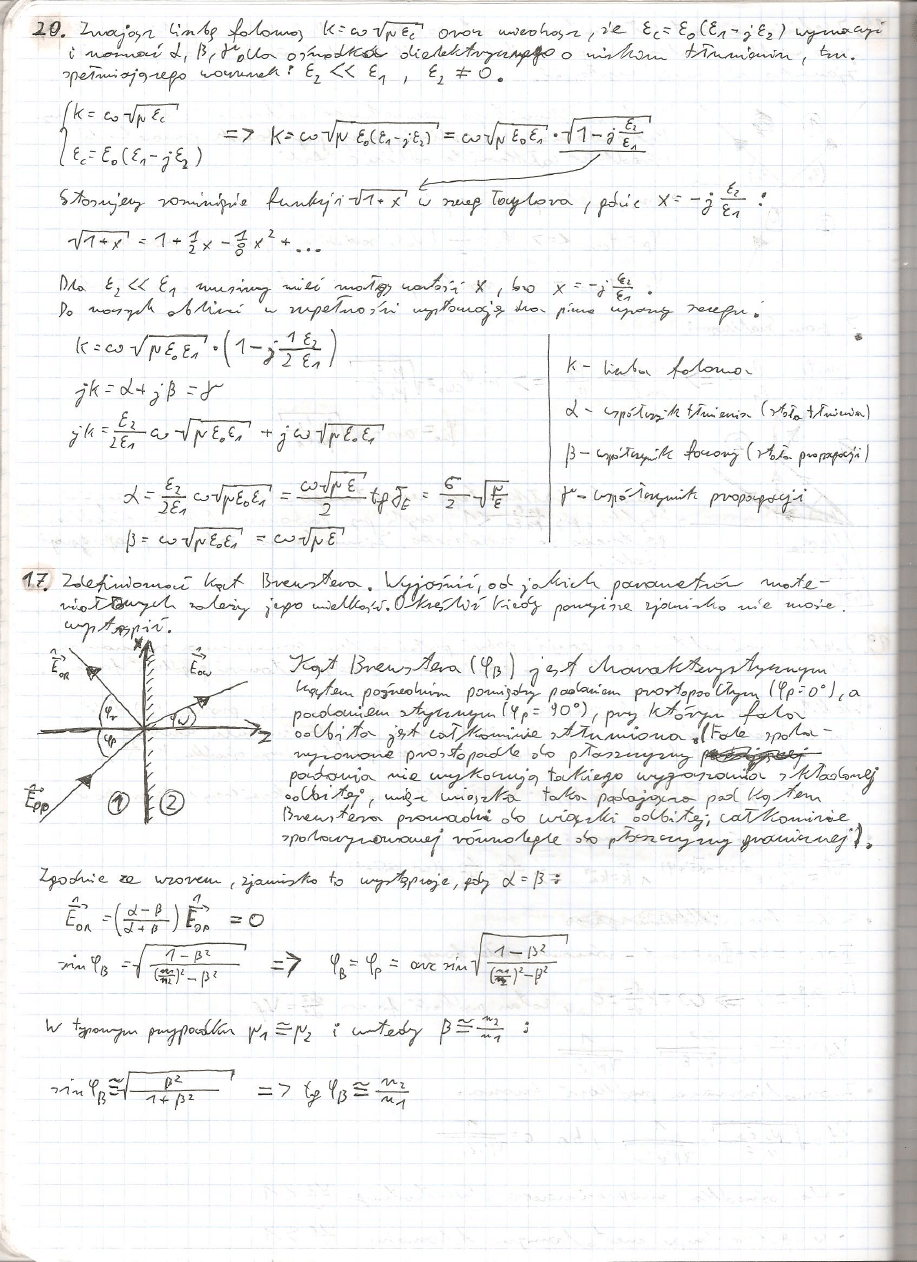 20. Znając liczbę falową k = ω√μεc oraz wiedząc, że εc = ε0(ε1 - jε2) wyznaczyć
i nazwać α, β, γ dla ośrodka dielektrycznego o niskim tłumieniu, tzn.
spełniającego warunek: ε2 << ε1 , ε2 ≠ 0.
{ k = ω√μεc
εc = ε0(ε1 - jε2)
=> k = ω√με0(ε1-jε2) = ω√με0ε1 · √1 - j ε2/ε1
Stosujemy rozwinięcie funkcji √1+x w szereg Taylora, gdzie x = -j ε2/ε1 :
√1+x = 1 + 1/2 x - 1/8 x² + ...
Dla ε2 << ε1 musimy mieć małą wartość x, bo x = -j ε2/ε1 .
Do naszych obliczeń w zupełności wystarczają dwa pierwsze wyrazy szeregu:
k = ω√με0ε1 · (1 - j 1/2 ε2/ε1)
jk = α + jβ = γ
jk = ε2/2ε1 ω√με0ε1 + jω√με0ε1
α = ε2/2ε1 ω√με0ε1 = ω√με/2 tgδE = σ/2 √μ/ε
β = ω√με0ε1 = ω√με
k - liczba falowa
α - współczynnik tłumienia (stała tłumienia)
β - współczynnik fazowy (stała propagacji)
γ - współczynnik propagacji
17. Zdefiniować kąt Brewstera. Wyjaśnić, od jakich parametrów mate-
riałowych zależy jego wielkość. Określić kiedy powyższe zjawisko nie może
wystąpić.
x
E0R
E0W
φr
φp
φw
z
E0P
1 2
Kąt Brewstera (φB) jest charakterystycznym
kątem pośrednim pomiędzy padaniem prostopadłym (φp = 0°), a
padaniem stycznym (φp = 90°), przy którym fala
odbita jest całkowicie stłumiona. (Fale spola-
ryzowane prostopadle do płaszczyzny
padania nie wykazują takiego wygaszania składowej
odbitej, więc wiązka taka padająca pod kątem
Brewstera prowadzi do wiązki odbitej, całkowicie
spolaryzowanej równolegle do płaszczyzny granicznej).
Zgodnie ze wzorem, zjawisko to występuje, gdy α = β :
E0R = (α-β/α+β) E0P = 0
sin φB = √1-β²/(n1/n2)²-β² => φB = φp = arc sin √1-β²/(n1/n2)²-β²
W typowym przypadku μ1 ≅ μ2 i wtedy β ≅ n2/n1 :
sin φB ≅ √β²/1+β² => tg φB ≅ n2/n1